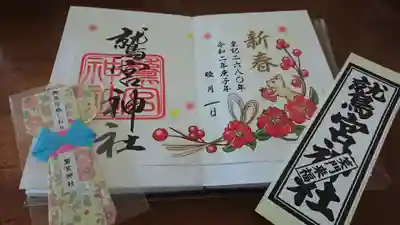 新春
皇記二六八〇年
令和二年庚子年
睦月一日
鷲宮神社
鷲宮神社
鷲宮神社